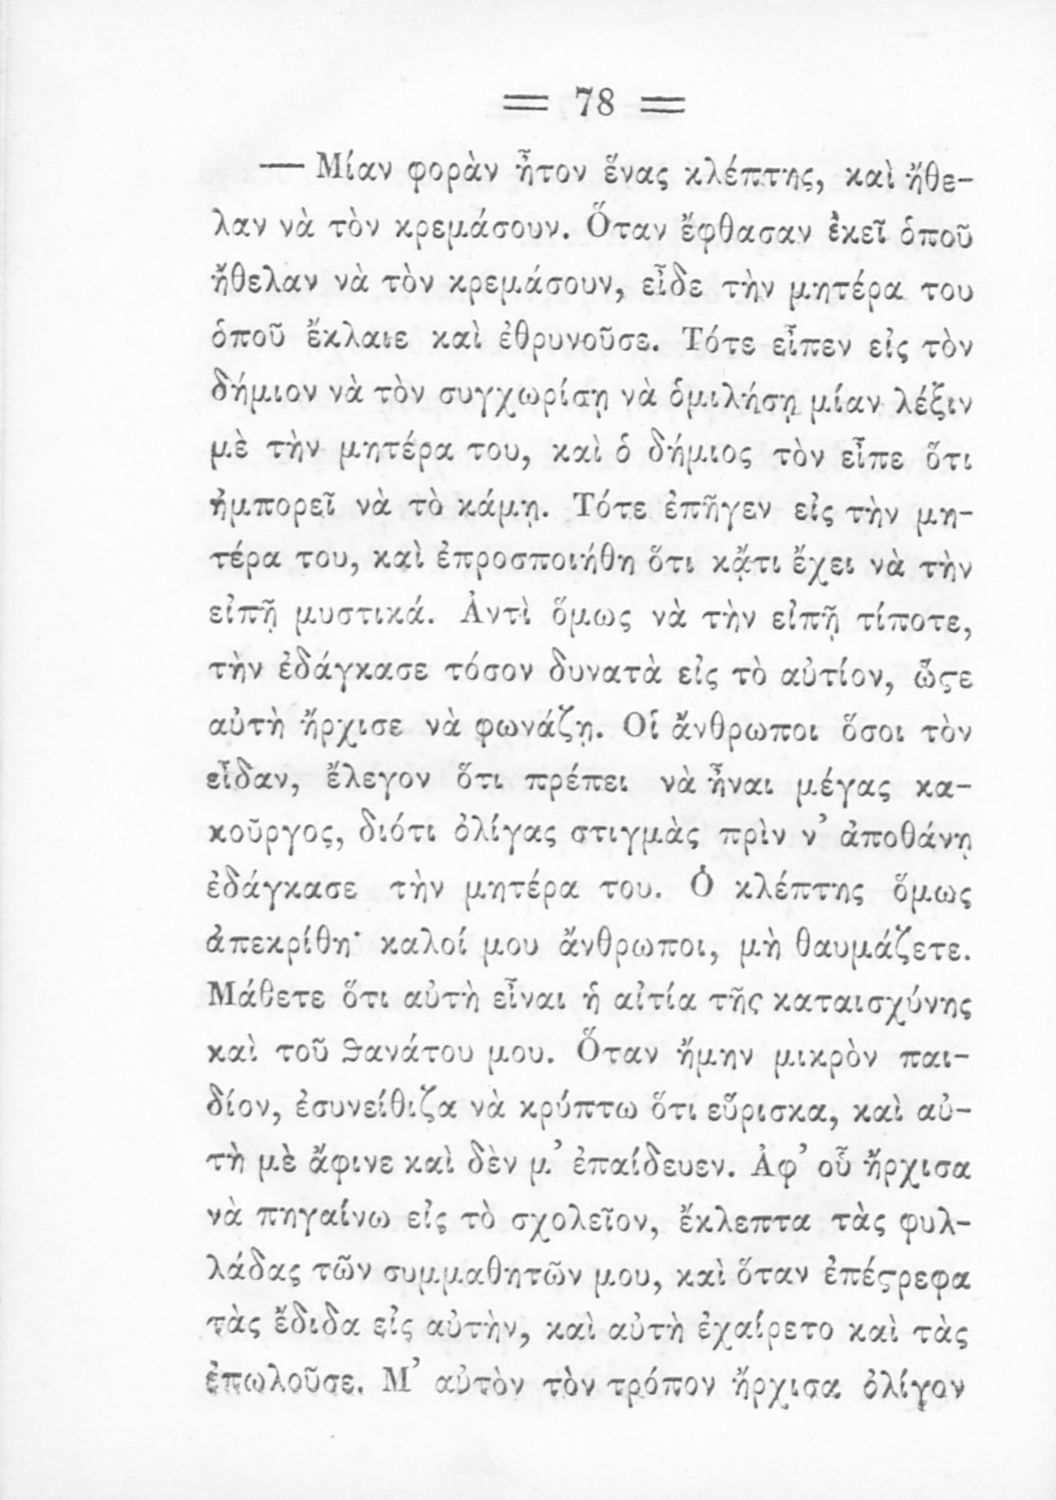 = 78 =
— Μίαν φορὰν ἦτον ἕνας κλέπτης, καὶ ἤθε-
λαν νὰ τὸν κρεμάσουν. Ὅταν ἔφθασαν ἐκεῖ ὁποῦ
ἤθελαν νὰ τὸν κρεμάσουν, εἶδε τὴν μητέρα του
ὁποῦ ἔκλαιε καὶ ἐθρυνοῦσε. Τότε εἶπεν εἰς τὸν
δήμιον νὰ τὸν συγχωρίσῃ νὰ ὁμιλήσῃ μίαν λέξιν
μὲ τὴν μητέρα του, καὶ ὁ δήμιος τὸν εἶπε ὅτι
ἠμπορεῖ νὰ τὸ κάμῃ. Τότε ἐπῆγεν εἰς τὴν μη-
τέρα του, καὶ ἐπροσποιήθη ὅτι κᾄτι ἔχει νὰ τὴν
εἰπῇ μυστικά. Ἀντὶ ὅμως νὰ τὴν εἰπῇ τίποτε,
τὴν ἐδάγκασε τόσον δυνατὰ εἰς τὸ αὐτίον, ὥϛε
αὐτὴ ἤρχισε νὰ φωνάζῃ. Οἱ ἄνθρωποι ὅσοι τὸν
εἶδαν, ἔλεγον ὅτι πρέπει νὰ ἦναι μέγας κα-
κοῦργος, διότι ὀλίγας στιγμὰς πρὶν ν’ ἀποθάνῃ
ἐδάγκασε τὴν μητέρα του. Ὁ κλέπτης ὅμως
ἀπεκρίθη· καλοί μου ἄνθρωποι, μὴ θαυμάζετε.
Μάθετε ὅτι αὐτὴ εἶναι ἡ αἰτία τῆς καταισχύνης
καὶ τοῦ ϑανάτου μου. Ὅταν ἤμην μικρὸν παι-
δίον, ἐσυνείθιζα νὰ κρύπτω ὅτι εὕρισκα, καὶ αὐ-
τὴ μὲ ἄφινε καὶ δὲν μ’ ἐπαίδευεν. Ἀφ’ οὗ ἤρχισα
νὰ πηγαίνω εἰς τὸ σχολεῖον, ἔκλεπτα τὰς φυλ-
λάδας τῶν συμμαθητῶν μου, καὶ ὅταν ἐπέϛρεφα
τὰς ἔδιδα εἰς αὐτὴν, καὶ αὐτὴ ἐχαίρετο καὶ τὰς
ἐπωλοῦσε. Μ’ αὐτὸν τὸν τρόπον ἤρχισα ὀλίγον